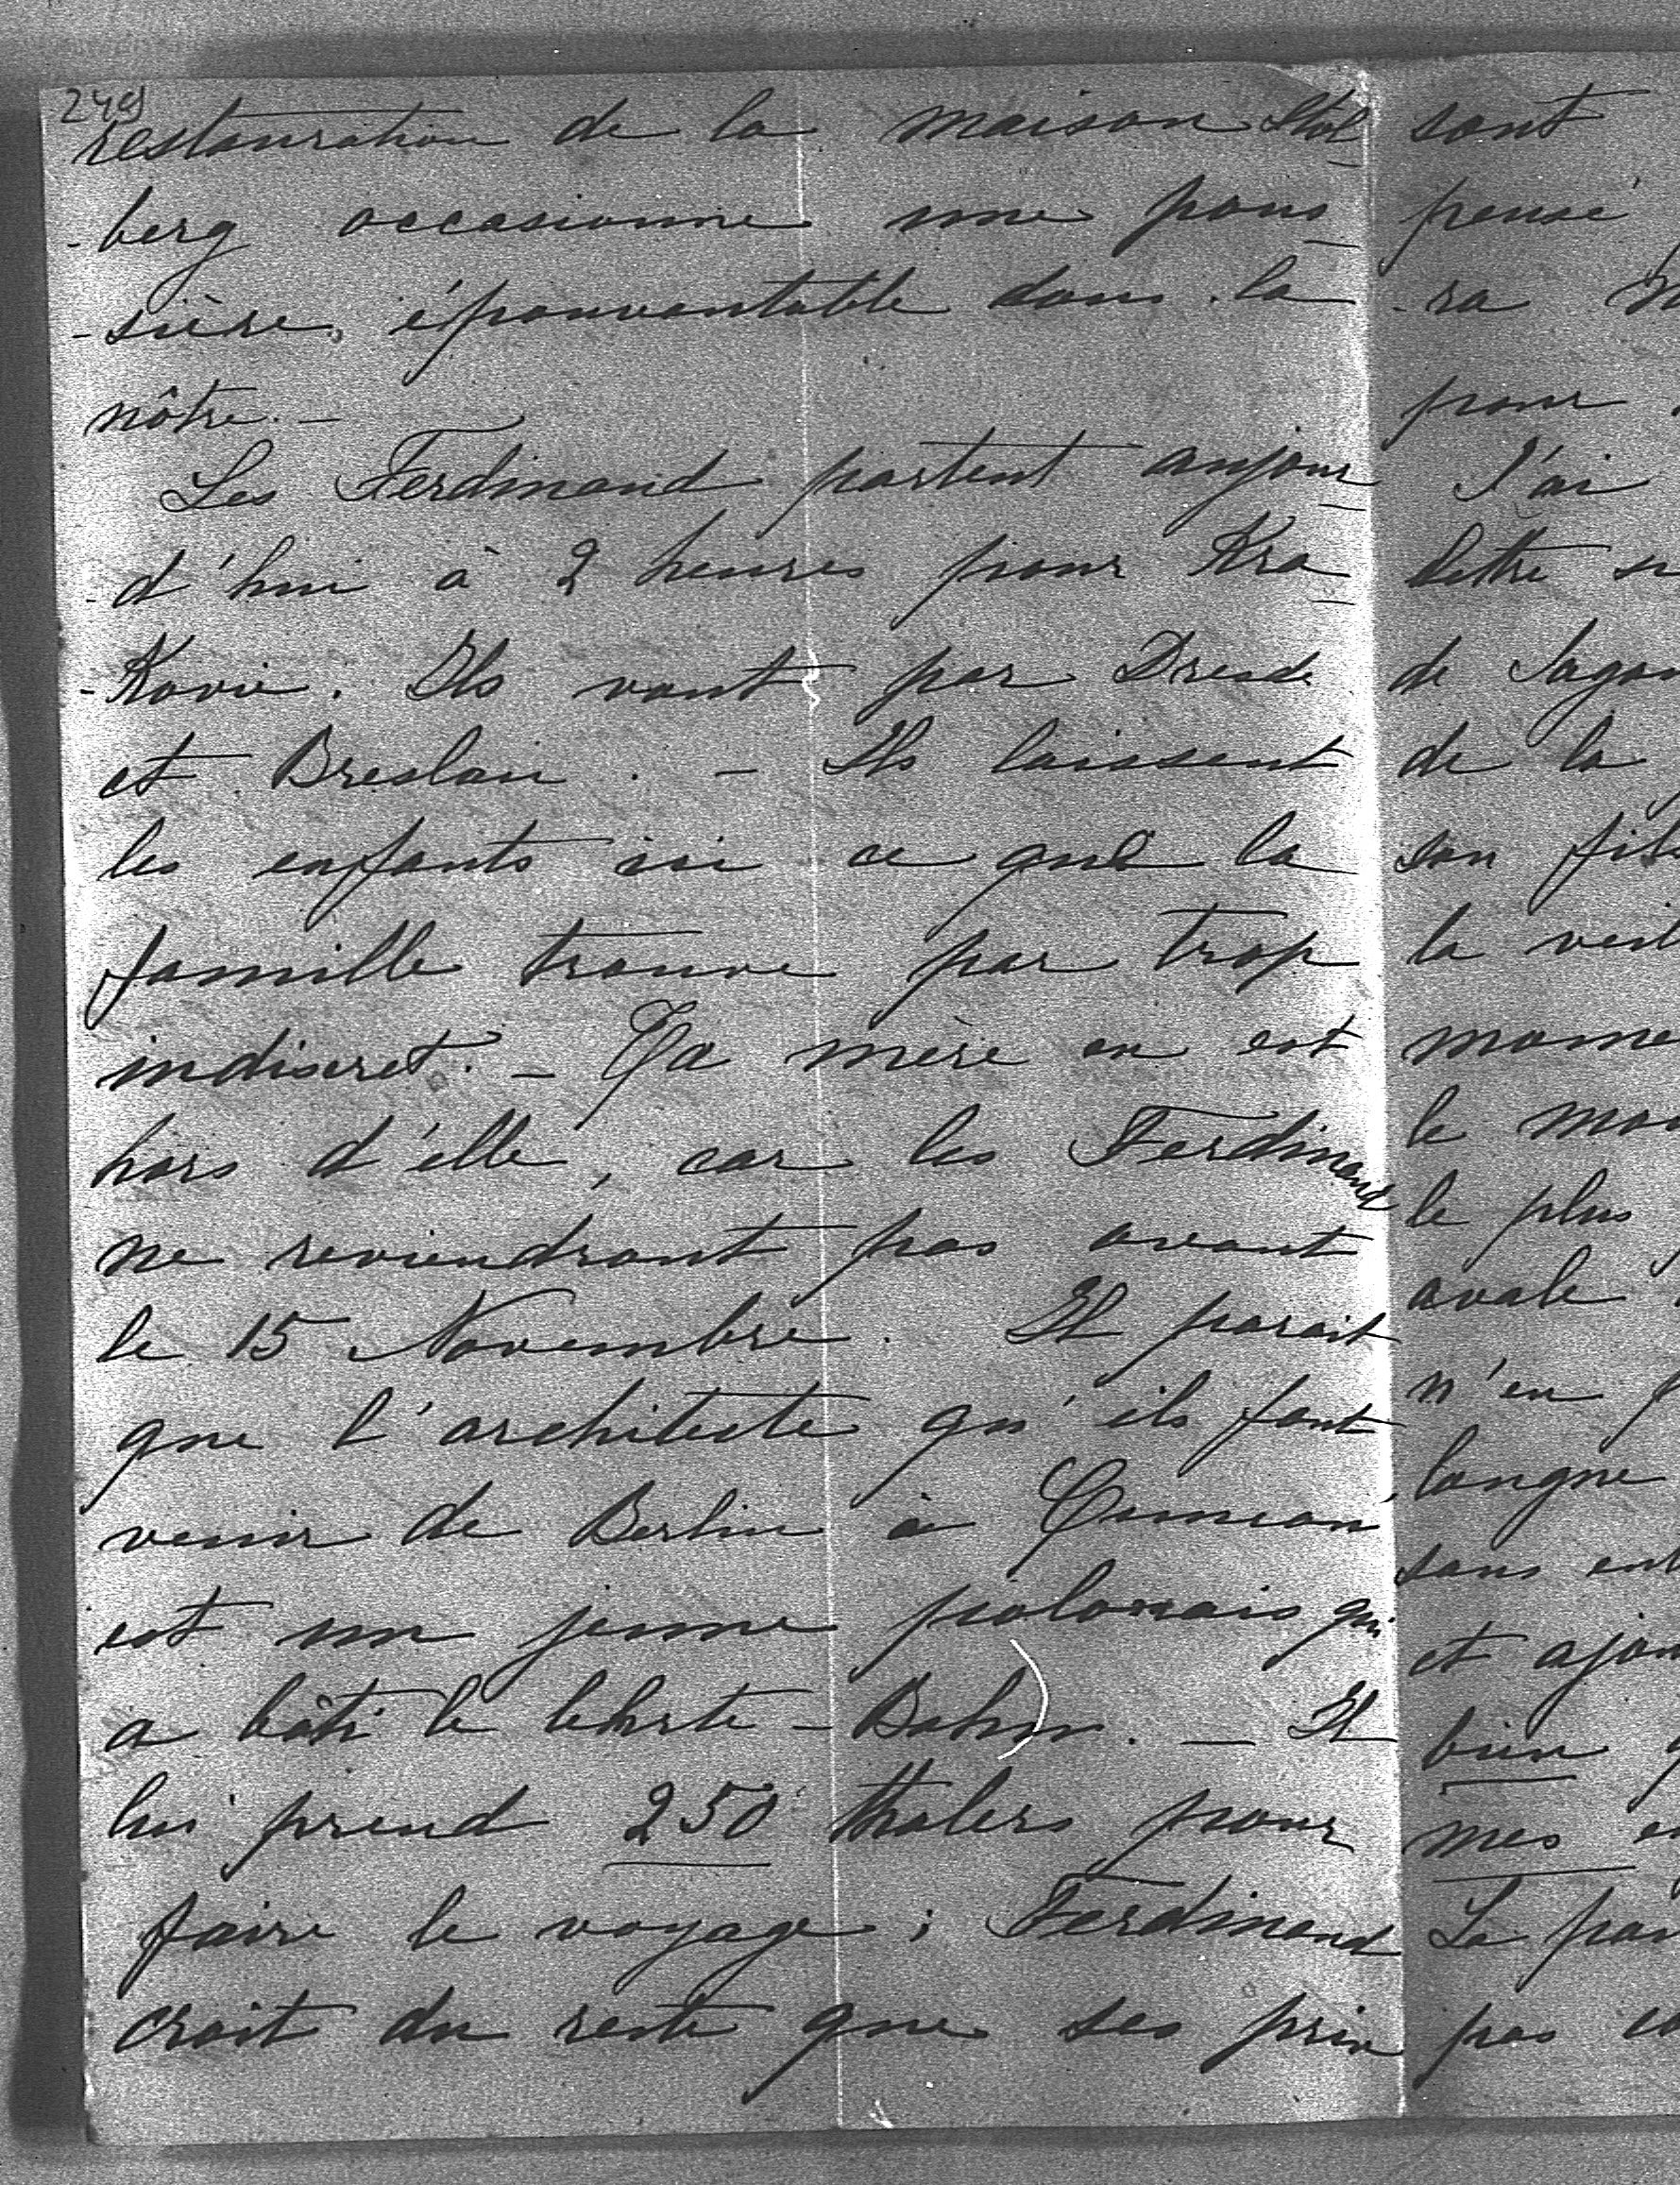 249
restauration de la maison Stol
-berg occasionne une pous
-sière, épouvantable dans la
nôtre. —
Les Ferdinand partent aujour
-d'hui à 2 heures pour Kra
-Kovie. Ils vont par Dresde
et Breslau. — Ils laissent
les enfants ici ce que la
famille trouve par trop
indiscret. — Ta mère en est
hors d'elle, car les Ferdinand
ne reviendront pas avant
le 15 Novembre. Il parait
que l'architecte qu'ils font
venir de Berlin à
est un jeune polonais qui
a bâti le lehrte - Bahn. — Il
lui prend 250 thalers pour
faire le voyage; Ferdinand
croit du reste que ses prix
sont
pensé
-ra
pour
J'ai
lettre
de
de la
son fils
la
le
le plus
avale
n'en
longue
sans
et
bien
mes
La
pas